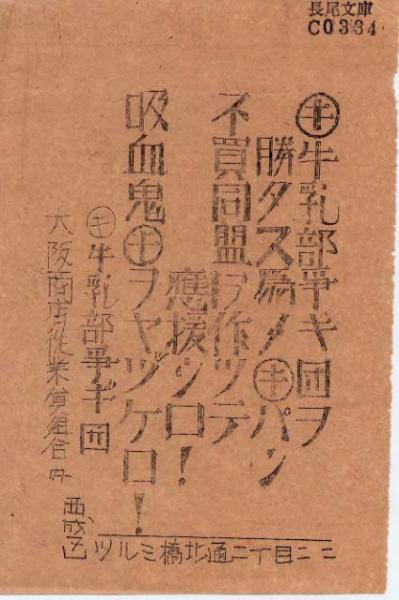 長尾文庫
C0334
㋖牛乳部爭ギ団ヲ
勝タス為ノ㋖パン
不買同盟ヲ作ツテ
應援シロ!
吸血鬼㋖ヲヤッツケロ!
㋖牛乳部爭ギ団
大阪商店従業員組合内
西成区
ツルミ橋北通二丁目二二